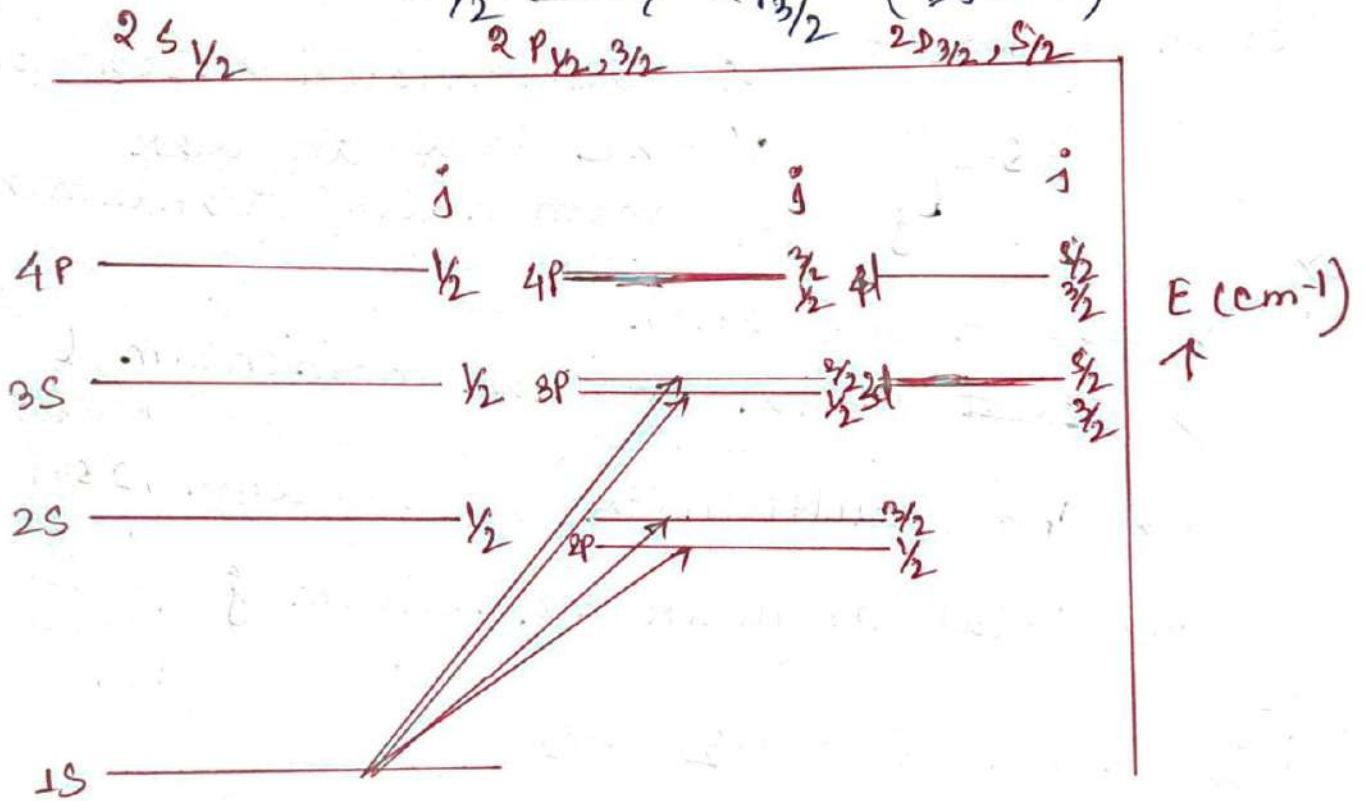 1/2 3/2
2 S 1/2 2 P 1/2, 3/2 2D3/2, 5/2
j j j
4P 1/2 4P 3/2 1/2 4d 5/2 3/2
E (cm-1)
↑
3S 1/2 3P 3/2 1/2 3d 5/2 3/2
2S 1/2 2P 3/2 1/2
1S